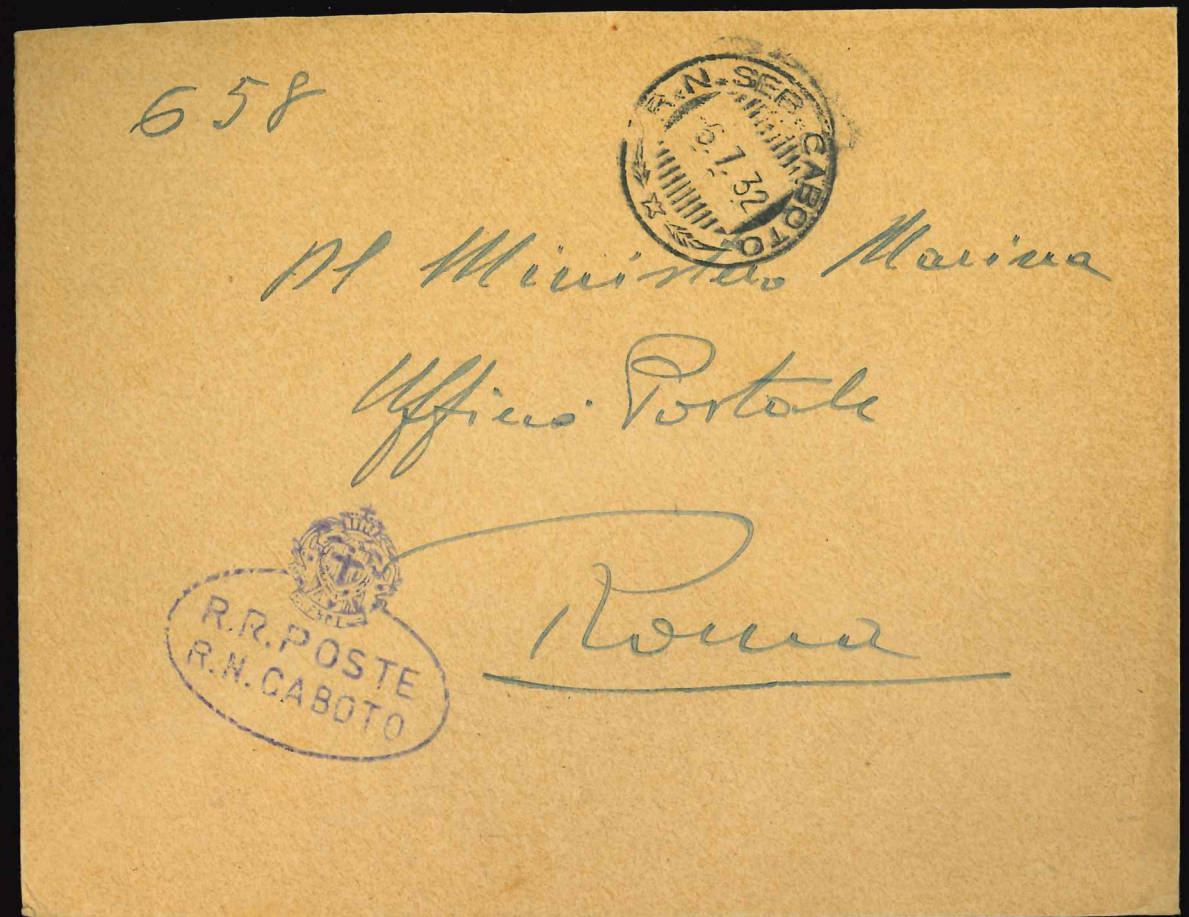 658
R.N. SEB. CABOTO
6.7.32
Al Ministero Marina
Ufficio Postale
Roma
R.R. POSTE
R.N. CABOTO